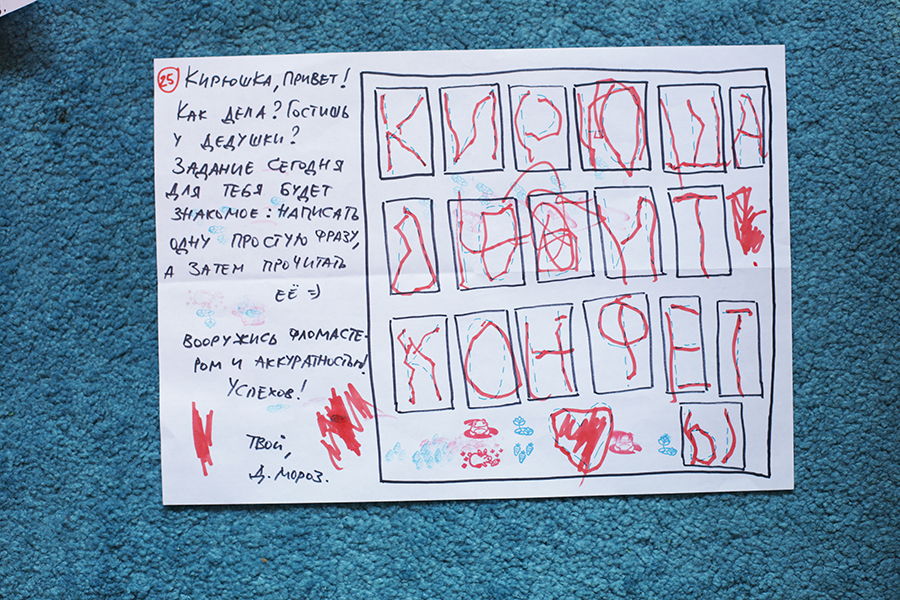 25 КИРЮШКА, ПРИВЕТ!
КАК ДЕЛА? ГОСТИШЬ
У ДЕДУШКИ?
ЗАДАНИЕ СЕГОДНЯ
ДЛЯ ТЕБЯ БУДЕТ
ЗНАКОМОЕ: НАПИСАТЬ
ОДНУ ПРОСТУЮ ФРАЗУ,
А ЗАТЕМ ПРОЧИТАТЬ
ЕЁ =)
ВООРУЖИСЬ ФЛОМАСТЕ-
РОМ И АККУРАТНОСТЬЮ!
УСПЕХОВ!
ТВОЙ,
Д. МОРОЗ.
КИРЮША
ЛЮБИТ
КОНФЕТ
Ы